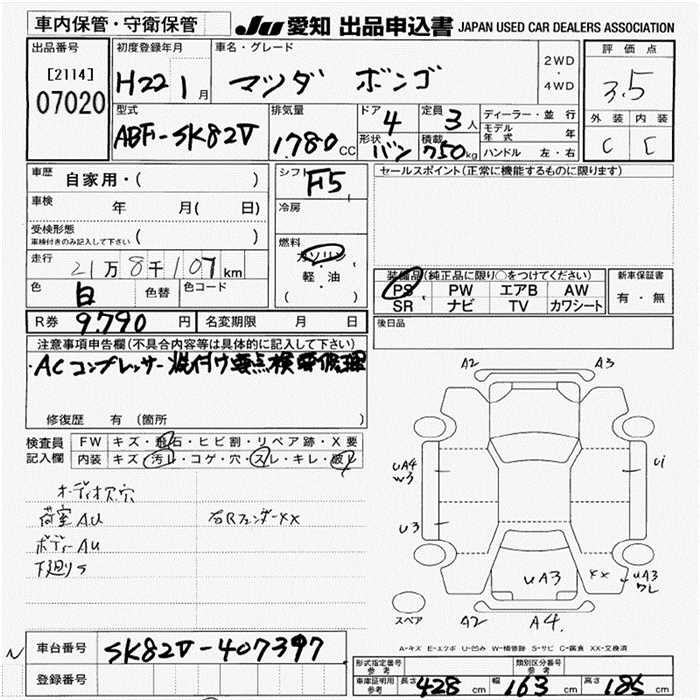 車内保管・守衛保管
JU 愛知 出品申込書 JAPAN USED CAR DEALERS ASSOCIATION
出品番号
[2114]
07020
初度登録年月
H22 1月
車名・グレード
マツダ ボンゴ
2WD
4WD
評価点
3.5
外装 内装
C C
型式
ABF-SK82V
排気量
1.780cc
ドア 4
形状 バン
定員 3人
積載 750kg
ディーラー・並行
モデル年式 年
ハンドル 左・右
車歴 自家用・( )
車検 年 月( 日)
受検形態
車検付きのみ記入して下さい ( )
走行 21万8千107km
色 白 色替 色コード
R券 9.790円 名変期限 月 日
シフト
F5
冷房
燃料
ガソリン
軽・油
( )
セールスポイント(正常に機能するものに限ります)
装備品(純正品に限り○をつけてください)
PS PW エアB AW
SR ナビ TV カワシート
新車保証書
有・無
後日品
注意事項申告欄(不具合内容等は具体的に記入して下さい)
・ACコンプレッサー焼付け要点検要修理
修復歴 有 (箇所 )
検査員記入欄
FW キズ・飛石・ヒビ割・リペア跡・X要
内装 キズ・汚レ・コゲ・穴・スレ・キレ・破レ
オーディオ欠穴
荷室AU
右Rフェンダーxx
ボディーAU
下廻りS
A2 A3
UA4
W3
U1
U3
UA3 xx UA3
ワレ
スペア
A2 A4.
A-キズ E-エクボ U-凹み W-補修跡 S-サビ C-腐食 XX-交換済
N
車台番号 SK82V-407397
登録番号
形式指定番号
参考
類別区分番号
参考
車庫証明用
参考
長さ 428cm 幅 163cm 高さ 185cm